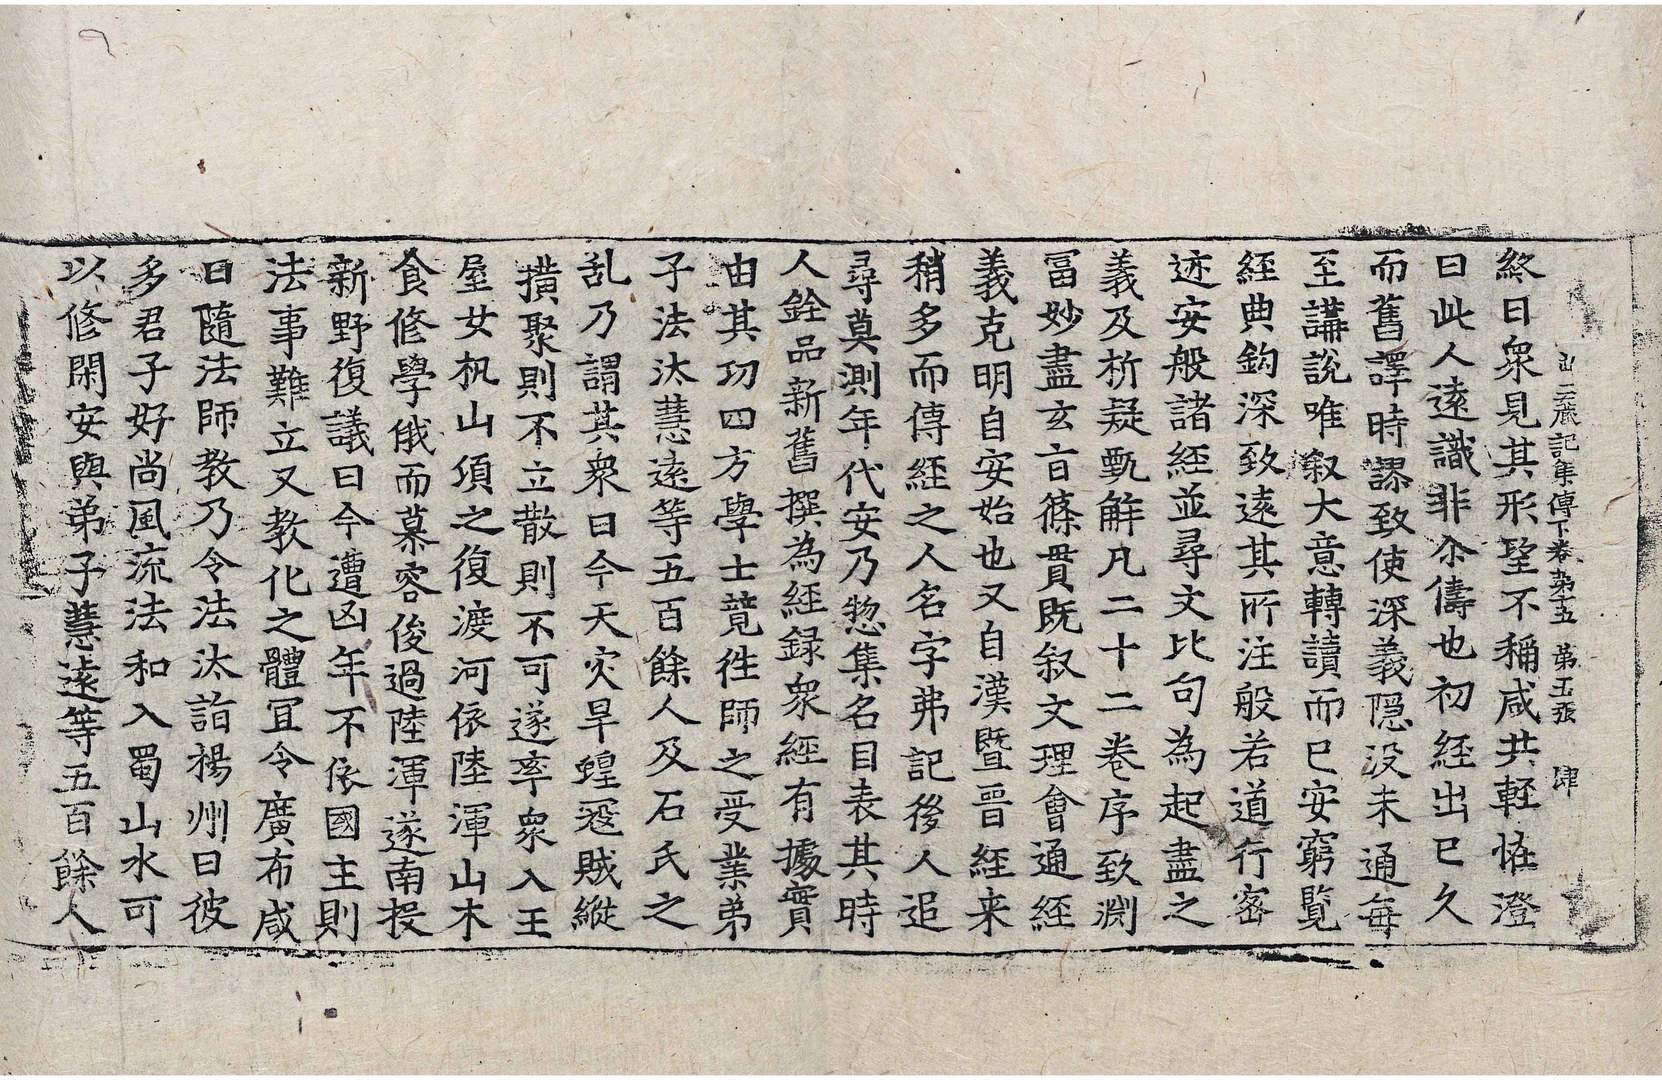 出三藏記集傳下卷苐五 苐五張 肆
終日衆見其形望不稱咸共輕恠澄
曰此人遠識非尒儔也初經出已久
而舊譯時謬致使深義隱没未通每
至講說唯叙大意轉讀而已安窮覽
經典鈎深致遠其所注般若道行密
迹安般諸經並尋文比句為起盡之
義及析疑甄解凡二十二卷序致淵
冨妙盡玄旨條貫既叙文理會通經
義克明自安始也又自漢暨晉經来
稍多而傳經之人名字弗記後人追
尋莫測年代安乃惣集名目表其時
人銓品新舊撰為經録衆經有據實
由其功四方學士竟徃師之受業弟
子法汰慧遠等五百餘人及石氏之
乱乃謂其衆曰今天灾旱蝗寇賊縱
撗聚則不立散則不可遂率衆入王
屋女机山頃之復渡河依陸渾山木
食修學俄而慕容俊過陸渾遂南投
新野復議曰今遭凶年不依國主則
法事難立又教化之體冝令廣布咸
曰隨法師教乃令法汰詣楊州曰彼
多君子好尚風流法和入蜀山水可
以修閑安與弟子慧遠等五百餘人